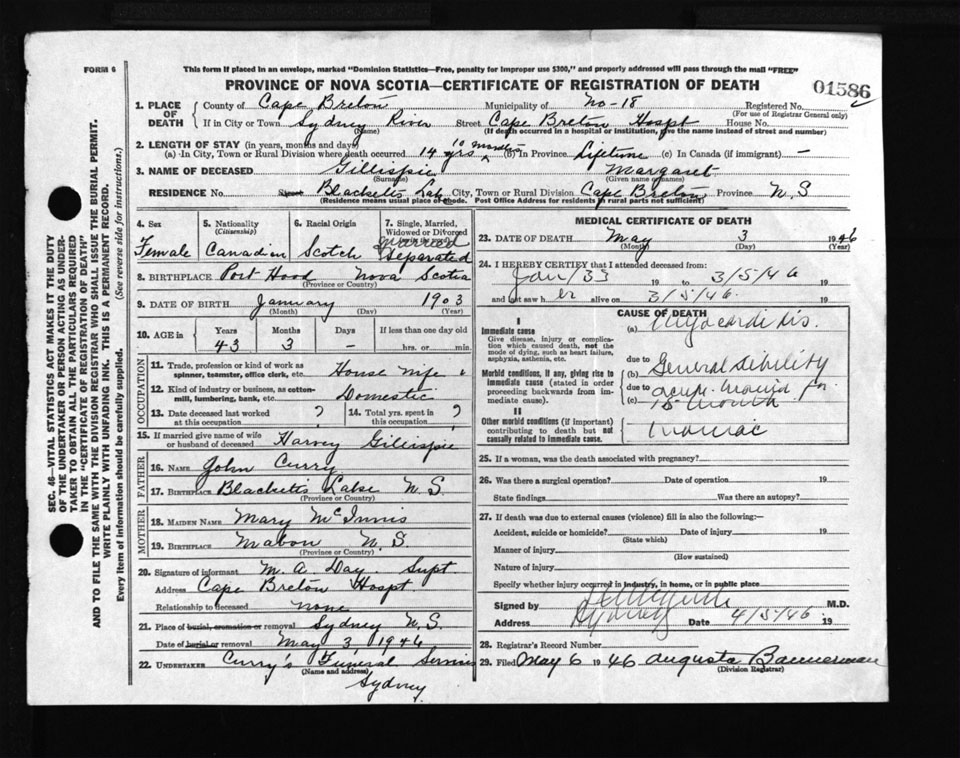 FORM 6
This form if placed in an envelope, marked "Dominion Statistics—Free, penalty for improper use $300," and properly addressed will pass through the mail "FREE"
PROVINCE OF NOVA SCOTIA—CERTIFICATE OF REGISTRATION OF DEATH
01586
1. PLACE OF DEATH
County of Cape Breton Municipality of No-18 Registered No.
(For use of Registrar General only)
If in City or Town Sydney River Street Cape Breton Hospt House No.
(Name) (If death occurred in a hospital or institution, give the name instead of street and number)
2. LENGTH OF STAY (in years, months and days)
(a) In City, Town or Rural Division where death occurred 14 yrs 10 months (b) In Province Lifetime (c) In Canada (if immigrant) —
3. NAME OF DECEASED Gillispie Margaret
(Surname) (Given name or names)
RESIDENCE No. Street Blacketts Lab City, Town or Rural Division Cape Breton Province N.S
(Residence means usual place of abode. Post Office Address for residents in rural parts not sufficient)
4. Sex
Female
5. Nationality
(Citizenship)
Canadian
6. Racial Origin
Scotch
7. Single, Married, Widowed or Divorced
Married
Separated
8. BIRTHPLACE Port Hood Nova Scotia
(Province or Country)
9. DATE OF BIRTH January 1903
(Month) (Day) (Year)
10. AGE in Years Months Days If less than one day old
43 3 — hrs. or min.
OCCUPATION
11. Trade, profession or kind of work as spinner, teamster, office clerk, etc. House wife
12. Kind of industry or business, as cotton-mill, lumbering, bank, etc. Domestic
13. Date deceased last worked at this occupation ?
14. Total yrs. spent in this occupation ?
15. If married give name of wife or husband of deceased Harvey Gillispie
FATHER
16. NAME John Curry
17. BIRTHPLACE Blacketts Lake N.S.
(Province or Country)
MOTHER
18. MAIDEN NAME Mary McInnis
19. BIRTHPLACE Mabou N.S.
(Province or Country)
20. Signature of informant M. A. Day Supt.
Address Cape Breton Hospt.
Relationship to deceased none
21. Place of burial, cremation or removal Sydney N.S.
Date of burial or removal May 3, 1946
22. UNDERTAKER Curry's Funeral Servis
(Name and address)
Sydney
MEDICAL CERTIFICATE OF DEATH
23. DATE OF DEATH May 3 1946
(Month) (Day) (Year)
24. I HEREBY CERTIFY that I attended deceased from:
Jan/33 19 to 3/5/46 19
and last saw h er alive on 3/5/46. 19
CAUSE OF DEATH
I
Immediate cause
Give disease, injury or complication which caused death, not the mode of dying, such as heart failure, asphyxia, asthenia, etc.
(a) Myocarditis.
due to
Morbid conditions, if any, giving rise to immediate cause (stated in order proceeding backwards from immediate cause).
(b) General debility
due to
(c) for
15 month
II
Other morbid conditions (if important) contributing to death but not causally related to immediate cause.
25. If a woman, was the death associated with pregnancy?
26. Was there a surgical operation? Date of operation 19
State findings Was there an autopsy?
27. If death was due to external causes (violence) fill in also the following:—
Accident, suicide or homicide? Date of injury 19
(State which)
Manner of injury
(How sustained)
Nature of injury
Specify whether injury occurred in industry, in home, or in public place
Signed by M.D.
Address Sydney Date 4/5/46. 19
28. Registrar's Record Number
29. Filed May 6 1946 Augusta Bannerman
(Division Registrar)
SEC. 46—VITAL STATISTICS ACT MAKES IT THE DUTY
OF THE UNDERTAKER OR PERSON ACTING AS UNDER-
TAKER TO OBTAIN ALL THE PARTICULARS REQUIRED
IN THE "CERTIFICATE OF REGISTRATION OF DEATH"
AND TO FILE THE SAME WITH THE DIVISION REGISTRAR WHO SHALL ISSUE THE BURIAL PERMIT.
WRITE PLAINLY WITH UNFADING INK. THIS IS A PERMANENT RECORD.
Every item of information should be carefully supplied. (See reverse side for instructions.)